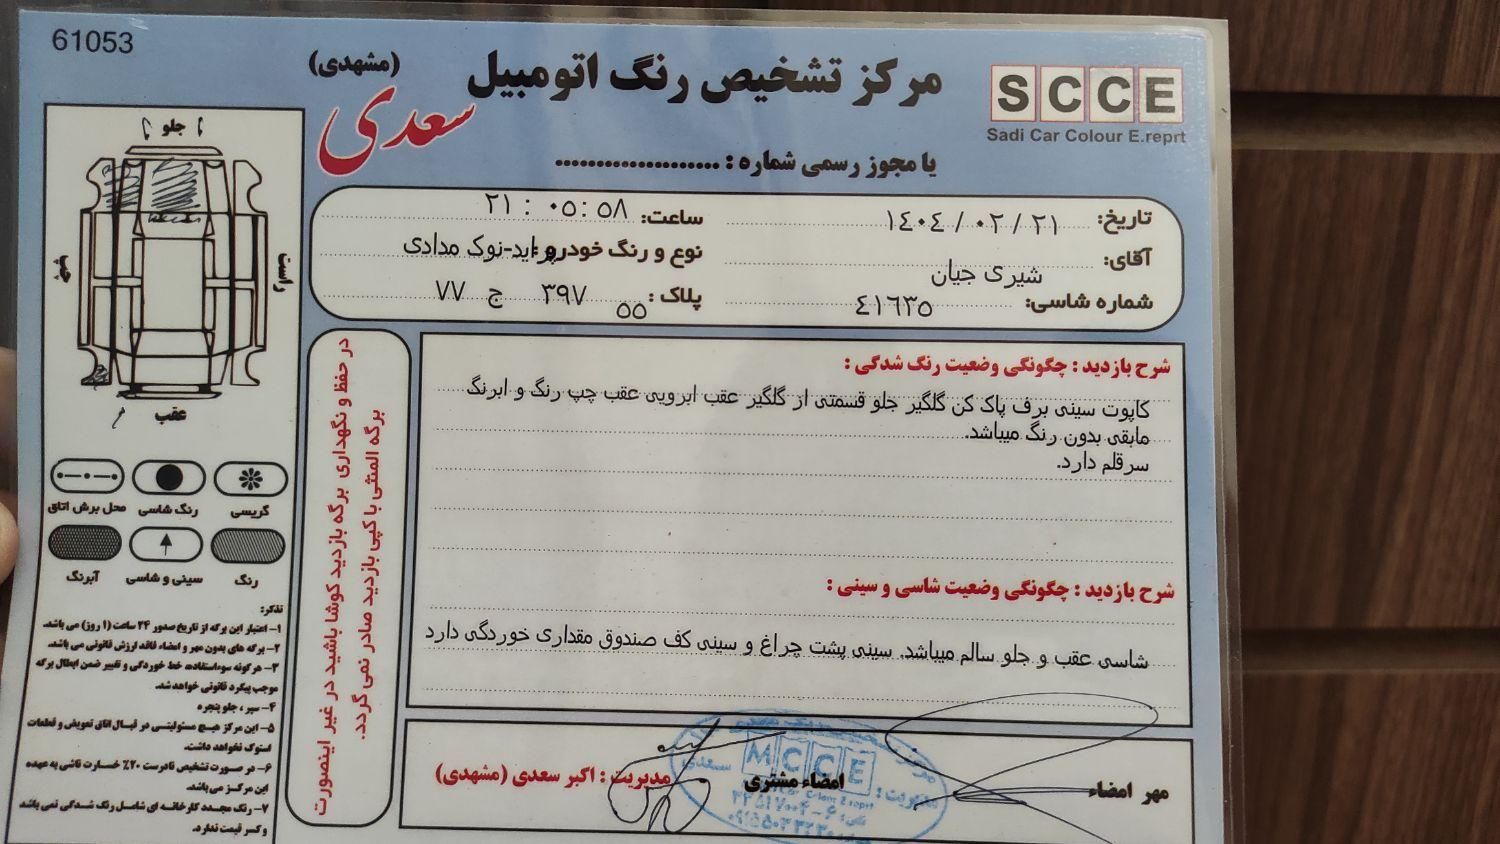 61053
(مشهدی)
مرکز تشخیص رنگ اتومبیل
سعدی
SCCE
Sadi Car Colour E.reprt
با مجوز رسمی شماره : ....................
تاریخ: ۱۴۰۴ / ۰۲ / ۲۱
ساعت: ۲۱ : ۰۵: ۵۸
آقای: شیری جیان
نوع و رنگ خودرو : پراید-نوک مدادی
شماره شاسی: ٤١٦٣٥
پلاک : ۳۹۷ ج ۷۷ ۵۵
جلو
راست
چپ
عقب
گریسی
رنگ شاسی
محل برش اتاق
رنگ
سینی و شاسی
آبرنگ
تذکر:
۱- اعتبار این برگه از تاریخ صدور ۲۴ ساعت (۱ روز) می باشد.
۲- برگه های بدون مهر و امضاء فاقد ارزش قانونی می باشد.
۳- هرگونه سوءاستفاده، خط خوردگی و تغییر ضمن ابطال برگه
موجب پیگرد قانونی خواهد شد.
۴- سپر ، جلو پنجره
۵- این مرکز هیچ مسئولیتی در قبال اتاق تعویض و قطعات
استوک نخواهد داشت.
۶- در صورت تشخیص نادرست ۲۰٪ خسارت ناشی به عهده
این مرکز می باشد.
۷- رنگ مجدد کارخانه ای شامل رنگ شدگی نمی باشد
و کسر قیمت ندارد.
در حفظ و نگهداری برگه بازدید کوشا باشید در غیر اینصورت
برگه المثنی یا کپی بازدید صادر نمی گردد.
شرح بازدید : چگونگی وضعیت رنگ شدگی :
کاپوت سینی برف پاک کن گلگیر جلو قسمتی از گلگیر عقب ابرویی عقب چپ رنگ و ابرنگ
مابقی بدون رنگ میباشد.
سرقلم دارد.
شرح بازدید : چگونگی وضعیت شاسی و سینی :
شاسی عقب و جلو سالم میباشد. سینی پشت چراغ و سینی کف صندوق مقداری خوردگی دارد
مهر امضاء
امضاء مشتری
مدیریت : اکبر سعدی (مشهدی)
MCCE
سعدی